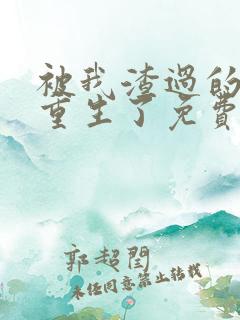 被我渣過的
重生了免費
郭超閏
未经同意禁止转载